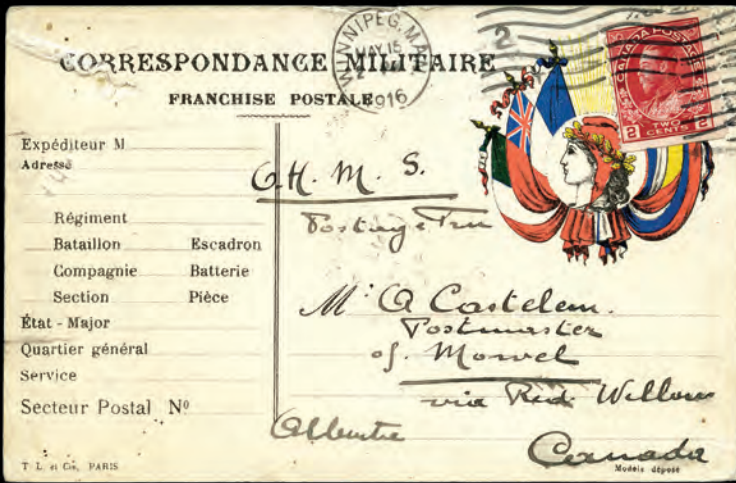 CORRESPONDANCE MILITAIRE
FRANCHISE POSTALE
WINNIPEG, MAN
MAY 15
2
1916
2
CANADA POSTAGE
2 TWO CENTS 2
Expéditeur M
Adresse
Régiment
Bataillon Escadron
Compagnie Batterie
Section Pièce
État - Major
Quartier général
Service
Secteur Postal Nº
T. L. et Cie, PARIS
O.H.M.S.
Postage Free
Mr A Castelem.
Postmaster
of Morvel
via Red Willow
Alberta
Canada
Modèle déposé